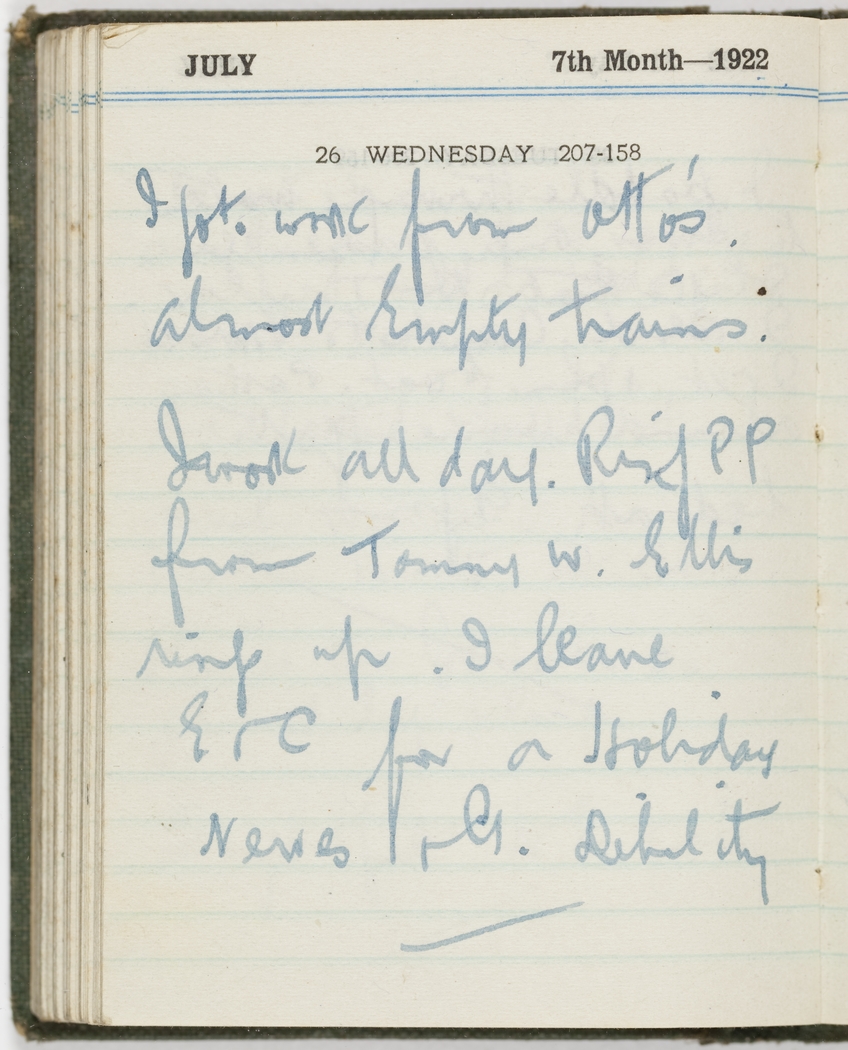 JULY 7th Month—1922
26 WEDNESDAY 207-158
I got. work from Otto's.
almost Empty trains.
I work all day. Ring PP
from Tommy W. Ellis
rings up. I leave
E & C for a Holiday
Nerves & G. Debility